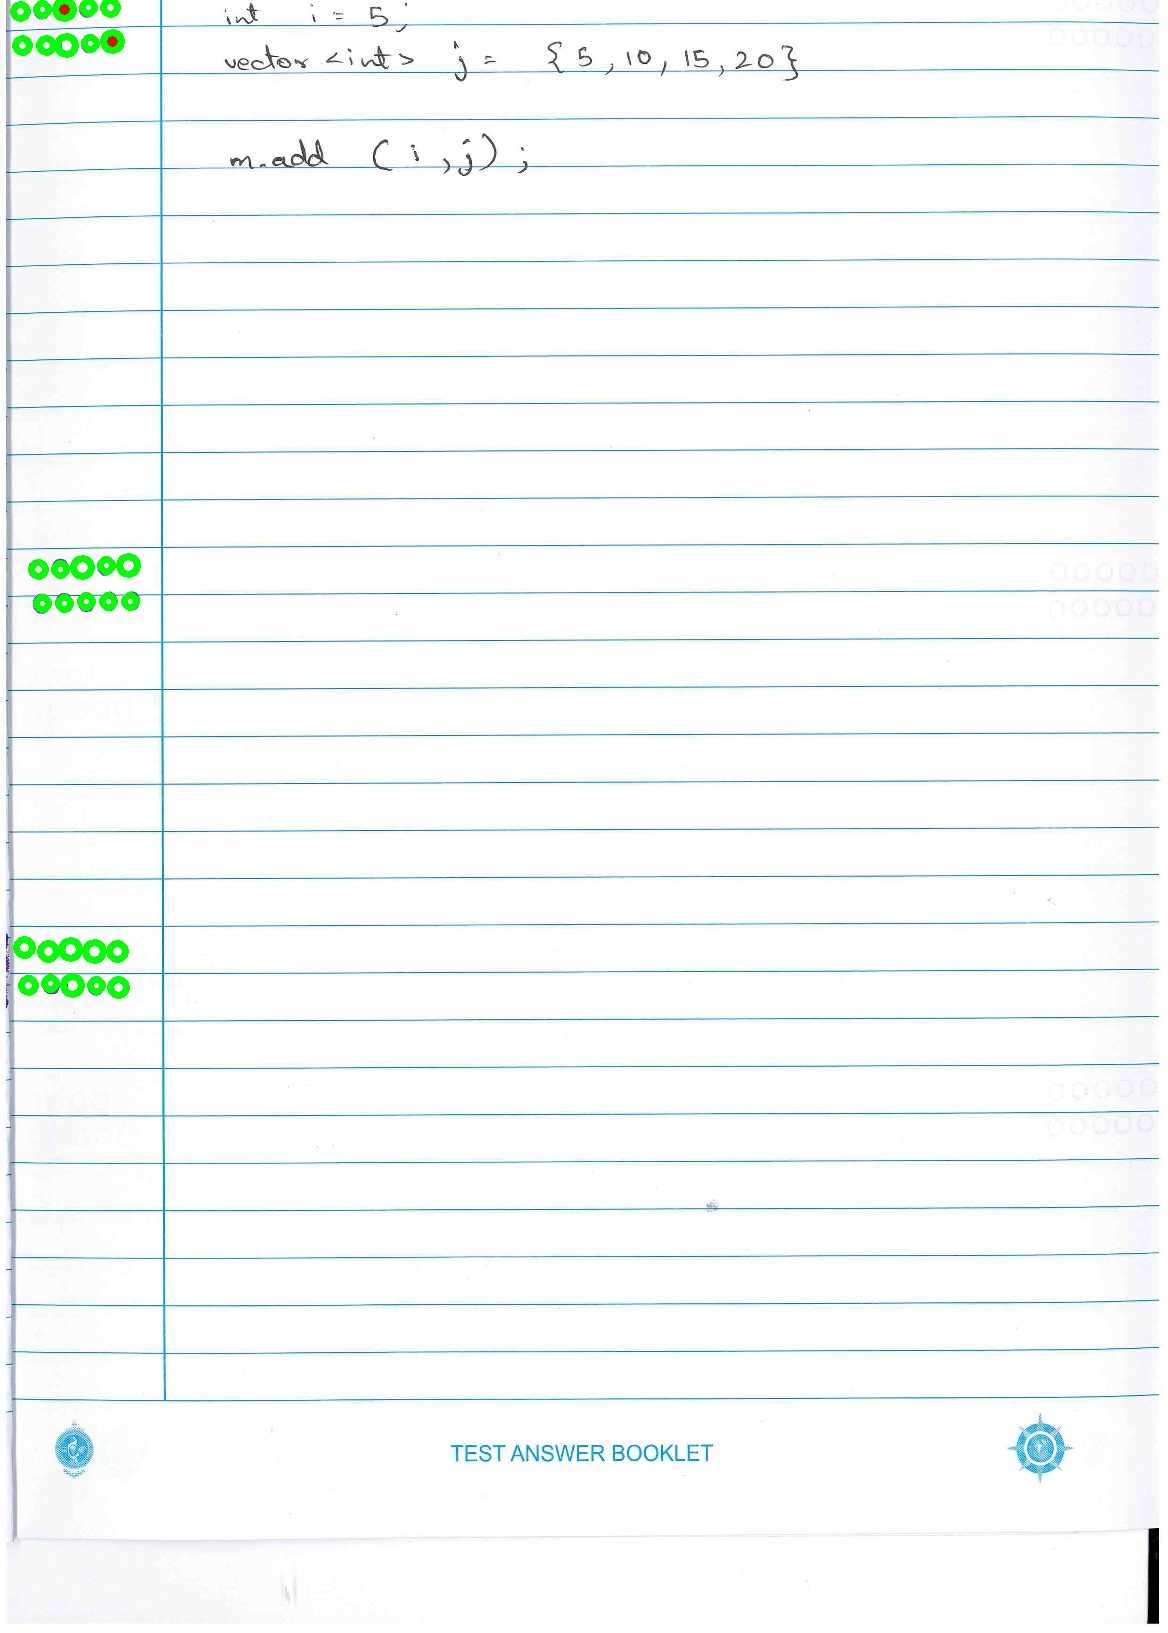 int i = 5;
vector <int> j = {5, 10, 15, 20}
m.add (i, j);
TEST ANSWER BOOKLET